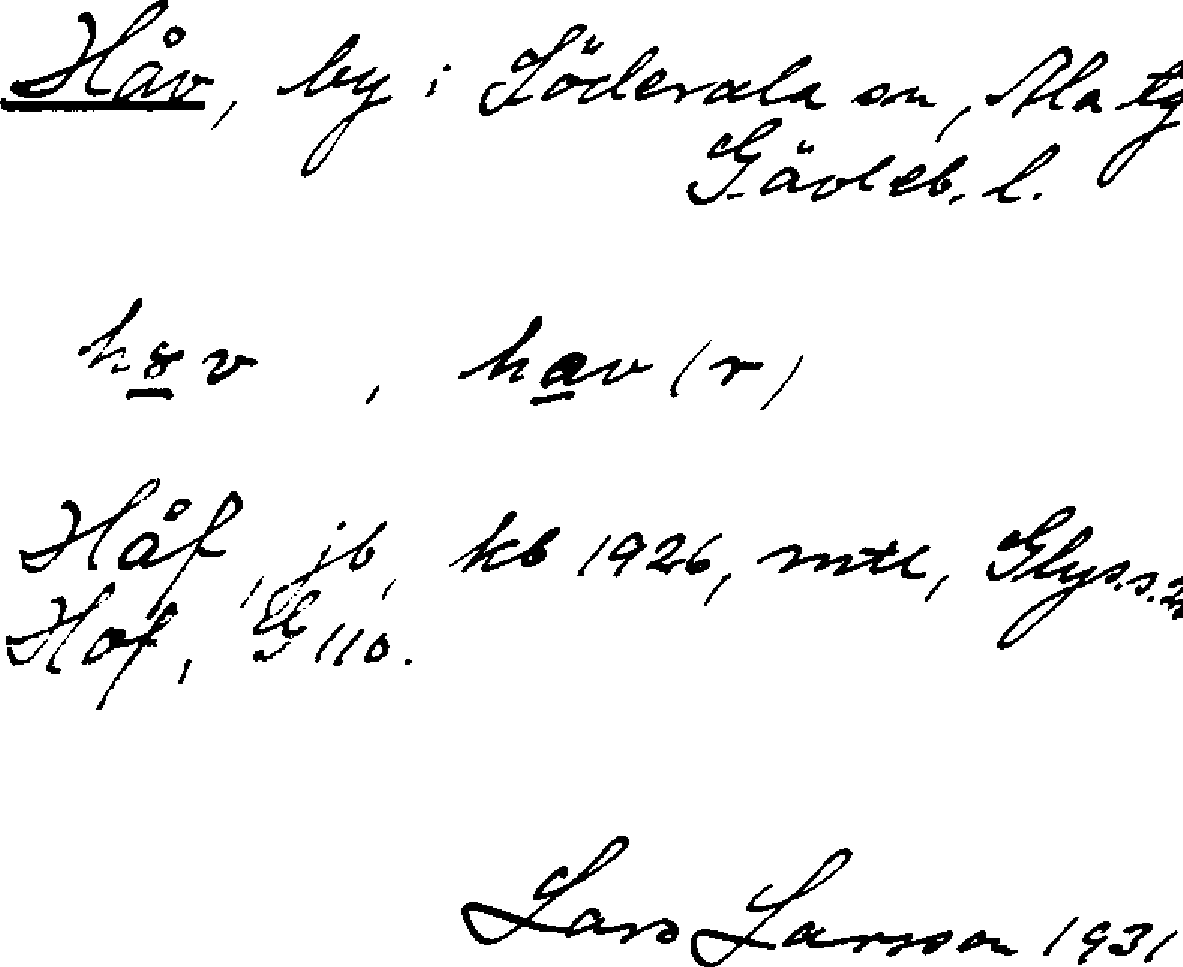 Håv, by i Söderala sn, Ala tg
Gävleb. l.
hav (r)
Håf, jb, kb 1926, mtl, Glys.s.
Hof, G 110.
Lars Larsson 1931